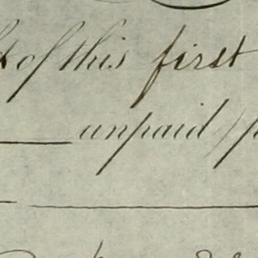 of this first
unpaid